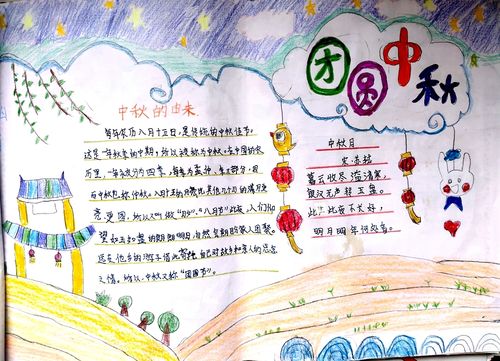 团圆中秋
中秋的由来
每年农历八月十五日，是传统的中秋佳节，
这是一年秋季的中期，所以被称为中秋。在中国的农
历里，一年被分为四季，每季为孟、仲、季三部分，因
而中秋也称仲秋。八月十五的月亮比其他几个月的满月更
亮更圆，所以又叫做"月夕"，"八月节"此夜，人们仰
望如玉如盘的朗朗明月，自然会期盼家人团聚。
远在他乡的游子借此寄托自己对故乡和亲人的思念
之情。所以，中秋又称"团圆节"。
中秋月
宋·苏轼
暮云收尽溢清寒，
银汉无声转玉盘。
此生此夜不长好，
明月明年何处看。